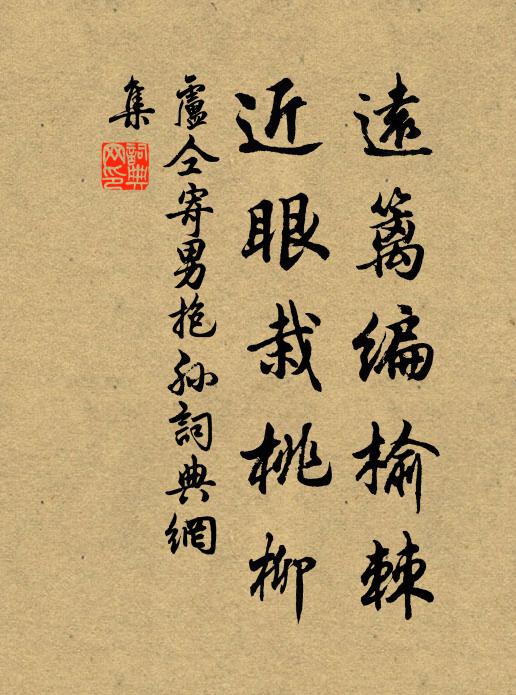 遠籬編榆棘
近眼栽桃柳
盧仝寄男抱孫詞典網
集
詞典
网印